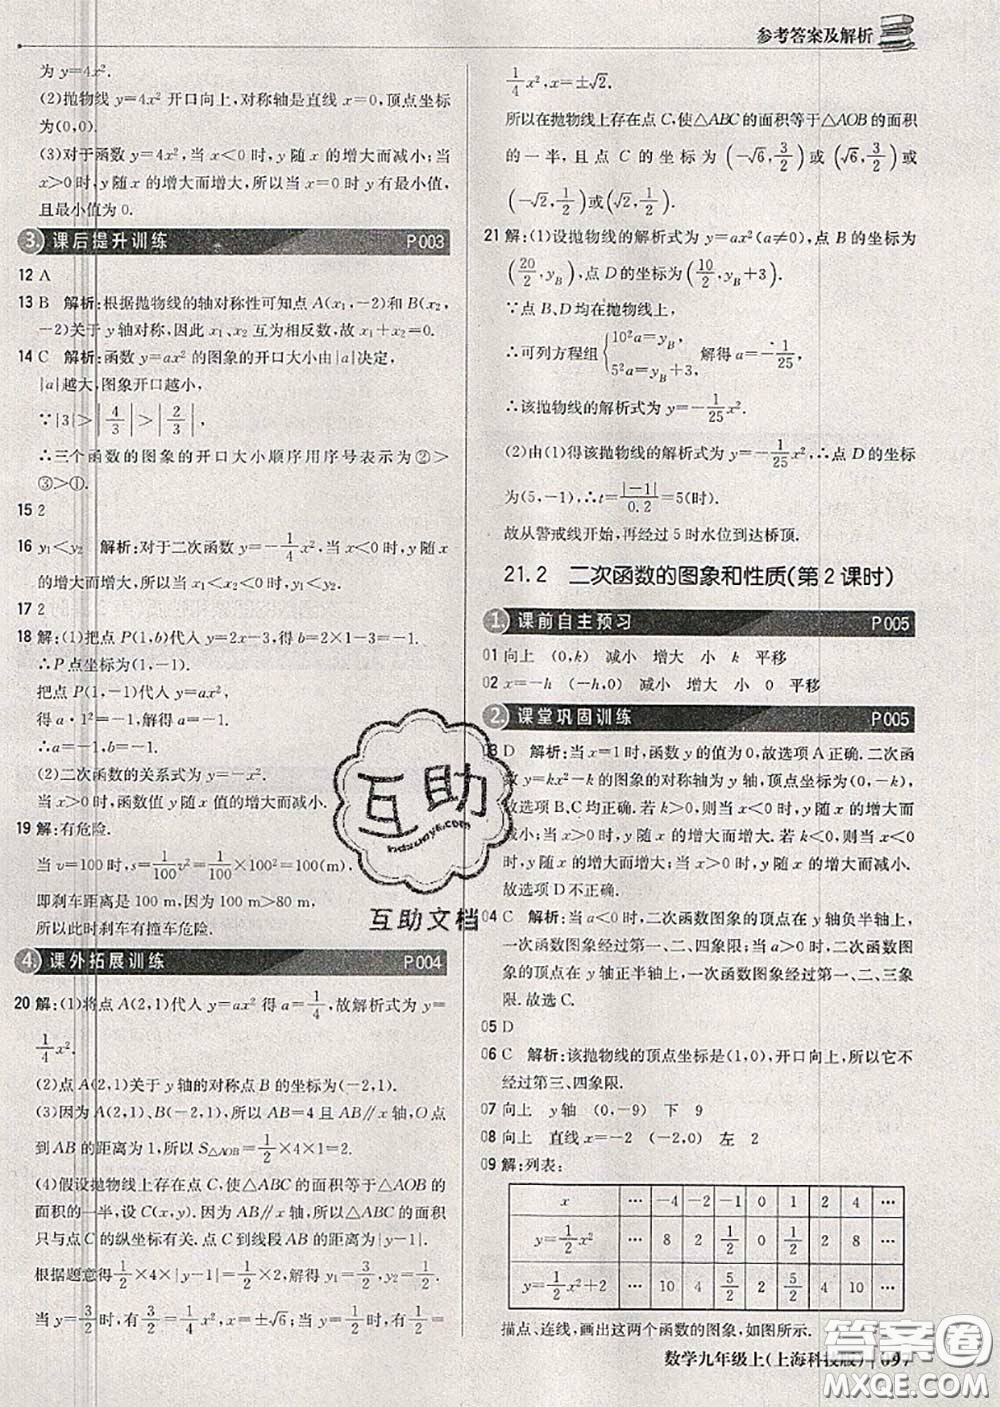 参考答案及解析
为 y=4x².
(2)抛物线 y=4x² 开口向上,对称轴是直线 x=0,顶点坐标
为(0,0).
(3)对于函数 y=4x²,当 x<0 时,y 随 x 的增大而减小;当
x>0 时,y 随 x 的增大而增大,所以当 x=0 时 y 有最小值,
且最小值为 0.
3. 课后提升训练 P003
12 A
13 B 解析:根据抛物线的轴对称性可知点 A(x₁,-2)和 B(x₂,
-2)关于 y 轴对称,因此 x₁、x₂ 互为相反数,故 x₁+x₂=0.
14 C 解析:函数 y=ax² 的图象的开口大小由|a|决定,
|a|越大,图象开口越小,
∵|3|>|4/3|>|2/3|,
∴三个函数的图象的开口大小顺序用序号表示为②>
③>①.
15 2
16 y₁<y₂ 解析:对于二次函数 y=-1/4x²,当 x<0 时,y 随 x
的增大而增大,所以当 x₁<x₂<0 时,y₁<y₂.
17 2
18 解:(1)把点 P(1,b)代人 y=2x-3,得 b=2×1-3=-1.
∴P 点坐标为(1,-1).
把点 P(1,-1)代人 y=ax²,
得 a·1²=-1,
∴a=-1.
(2)二次函数的关系式为 y=-x².
当 x<0 时,函数值 y 随 x 值的增大而增大.
19 解:有危险.
当 v=100 时,s=1/100v²=1/100×100²=100(m),
即刹车距离是 100 m,因为 100 m>80 m,
所以此时刹车有撞车危险.
4. 课外拓展训练 P004
20 解:(1)将点 A(2,1)代人 y=ax² 得 a=1/4,故解析式为 y=
1/4x².
(2)点 A(2,1)关于 y 轴的对称点 B 的坐标为(-2,1).
(3)因为 A(2,1),B(-2,1),所以 AB=4 且 AB∥x 轴,O点
到 AB 的距离为 1,所以 S△AOB=1/2×4×1=2.
(4)假设抛物线上存在点 C,使△ABC 的面积等于△AOB 的
面积的一半,设 C(x,y).因为 AB∥x 轴,所以△ABC 的面积
只与点 C 的纵坐标有关.点 C 到线段 AB 的距离为|y-1|.
根据题意得1/2×4×|y-1|=1/2×2.解得 y₁=3/2,y₂=1/2.
当 y=3/2 时,有 3/2=1/4x²,x=±√6,当 y=1/2 时,有 1/2=
1/4x²,x=±√2.
所以在抛物线上存在点 C,使△ABC 的面积等于△AOB 的面积
的一半,且点 C 的坐标为 (-√6,3/2)或(√6,3/2)或
(-√2,1/2)或(√2,1/2).
21 解:(1)设抛物线的解析式为 y=ax²(a≠0),点 B 的坐标为
(20/2,yB),点 D 的坐标为(10/2,yB+3).
∵点 B、D 均在抛物线上,
∴可列方程组{10²a=yB, 5²a=yB+3. 解得 a=-1/25,
∴该抛物线的解析式为 y=-1/25x².
(2)由(1)得该抛物线的解析式为 y=-1/25x²,∴点 D 的坐标
为(5,-1),∴t=|-1|/0.2=5(时).
故从警戒线开始,再经过 5 时水位到达桥顶.
21.2 二次函数的图象和性质(第2课时)
1. 课前自主预习 P005
01 向上 (0,k) 减小 增大 小 k 平移
02 x=-h (-h,0) 减小 增大 小 0 平移
2. 课堂巩固训练 P005
03 D 解析:当 x=1时,函数 y的值为 0,故选项 A正确.二次函
数 y=kx²-k 的图象的对称轴为 y 轴,顶点坐标为(0,-k),
故选项 B、C 均正确.若 k>0,则当 x>0 时,y 随 x 的增大而
减小;当 x<0 时,y 随 x 的增大而增大.若 k<0,则当 x>0
时,y 随 x 的增大而增大;当 x<0 时,y 随 x 的增大而减小.
故选项 D 不正确.
04 C 解析:当 a<0 时,二次函数图象的顶点在 y 轴负半轴上,
一次函数图象经过第一、二、四象限;当 a>0 时,二次函数图
象的顶点在 y 轴正半轴上,一次函数图象经过第一、二、三象
限.故选 C.
05 D
06 C 解析:该抛物线的顶点坐标是(1,0),开口向上,所以它不
经过第三、四象限.
07 向上 y 轴 (0,-9) 下 9
08 向上 直线 x=-2 (-2,0) 左 2
09 解:列表:
x … -4 -2 -1 0 1 2 4 …
y=1/2x² … 8 2 1/2 0 1/2 2 8 …
y=1/2x²+2 … 10 4 5/2 2 5/2 4 10 …
描点、连线,画出这两个函数的图象,如图所示.
数学九年级上(上海科技版) 097
互助
互助文档
答案圈
MXQE.COM